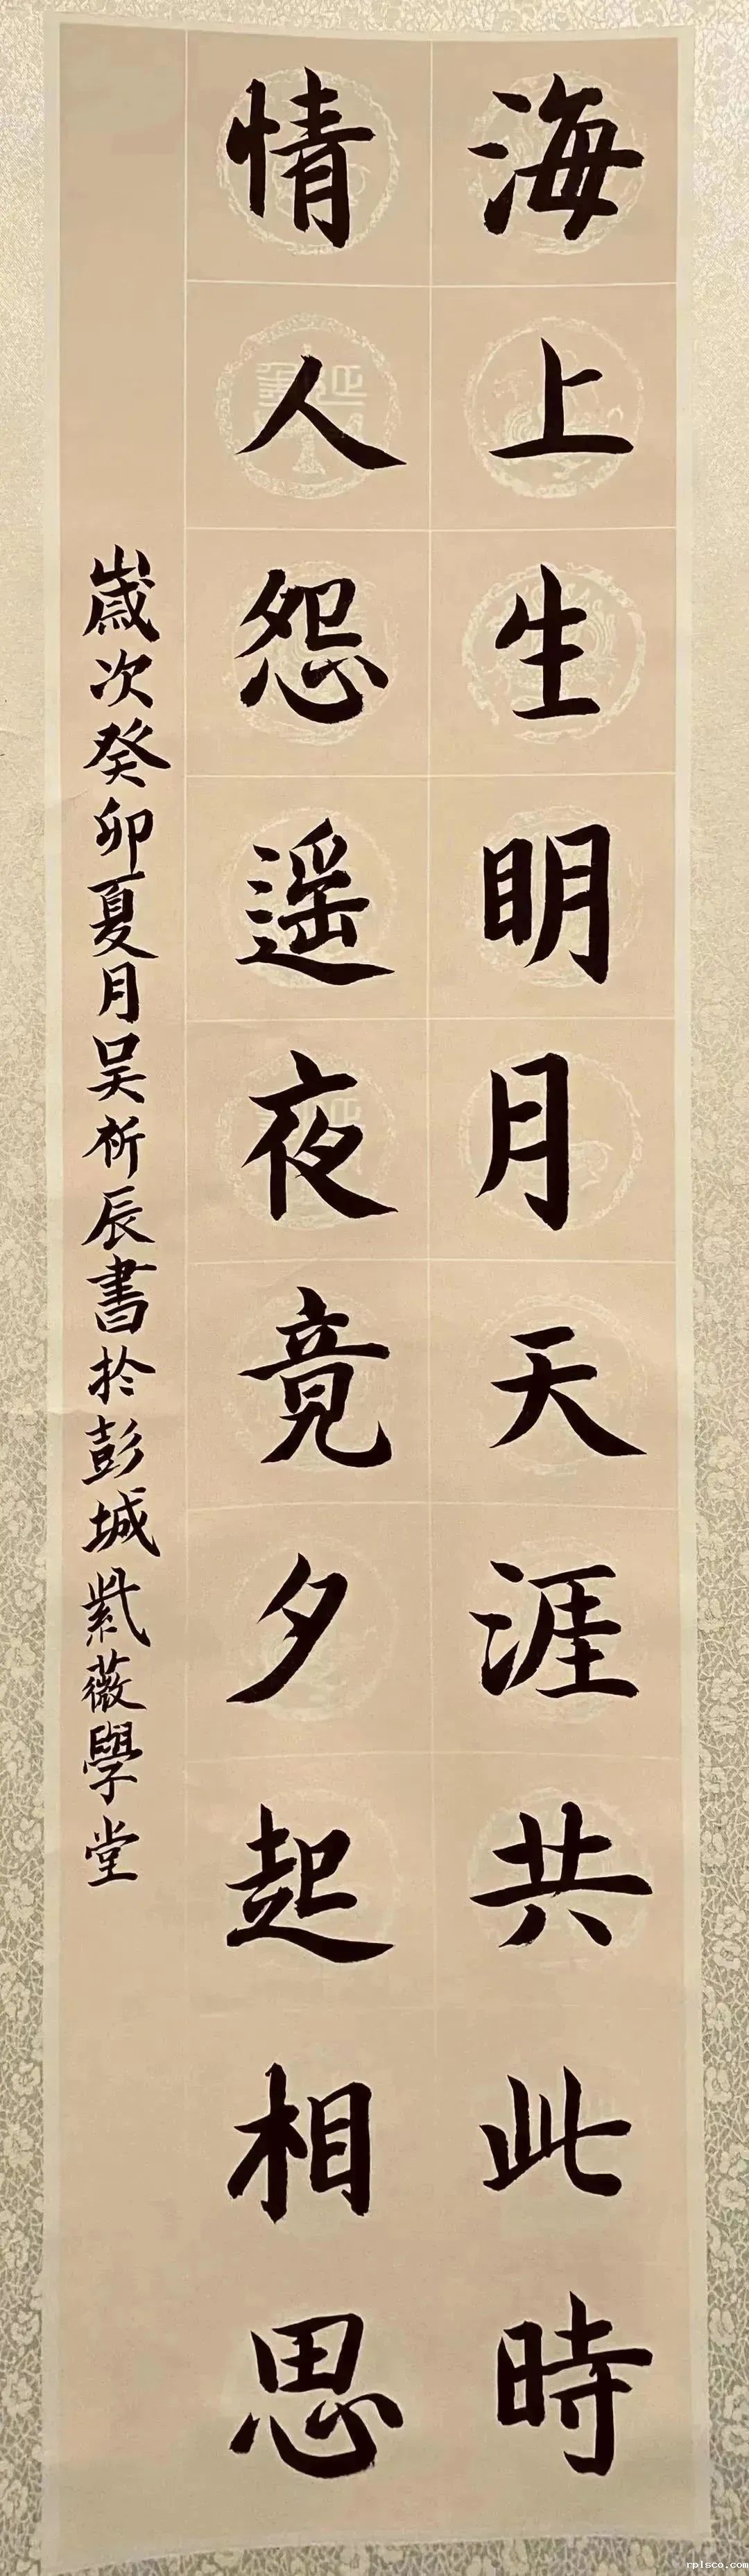 海上生明月天涯共此時
情人怨遥夜竟夕起相思
歲次癸卯夏月吴祈辰書於彭城紫薇學堂
rplsco.com